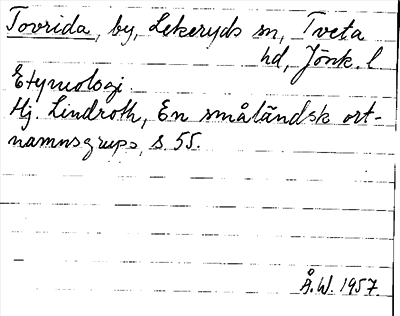 Tovrida, by, Lekeryds sn, Tveta
hd, Jönk. l
Etymologi.
Hj. Lindroth, En småländsk ort-
namnsgrupp, s. 55.
Å.W. 1957